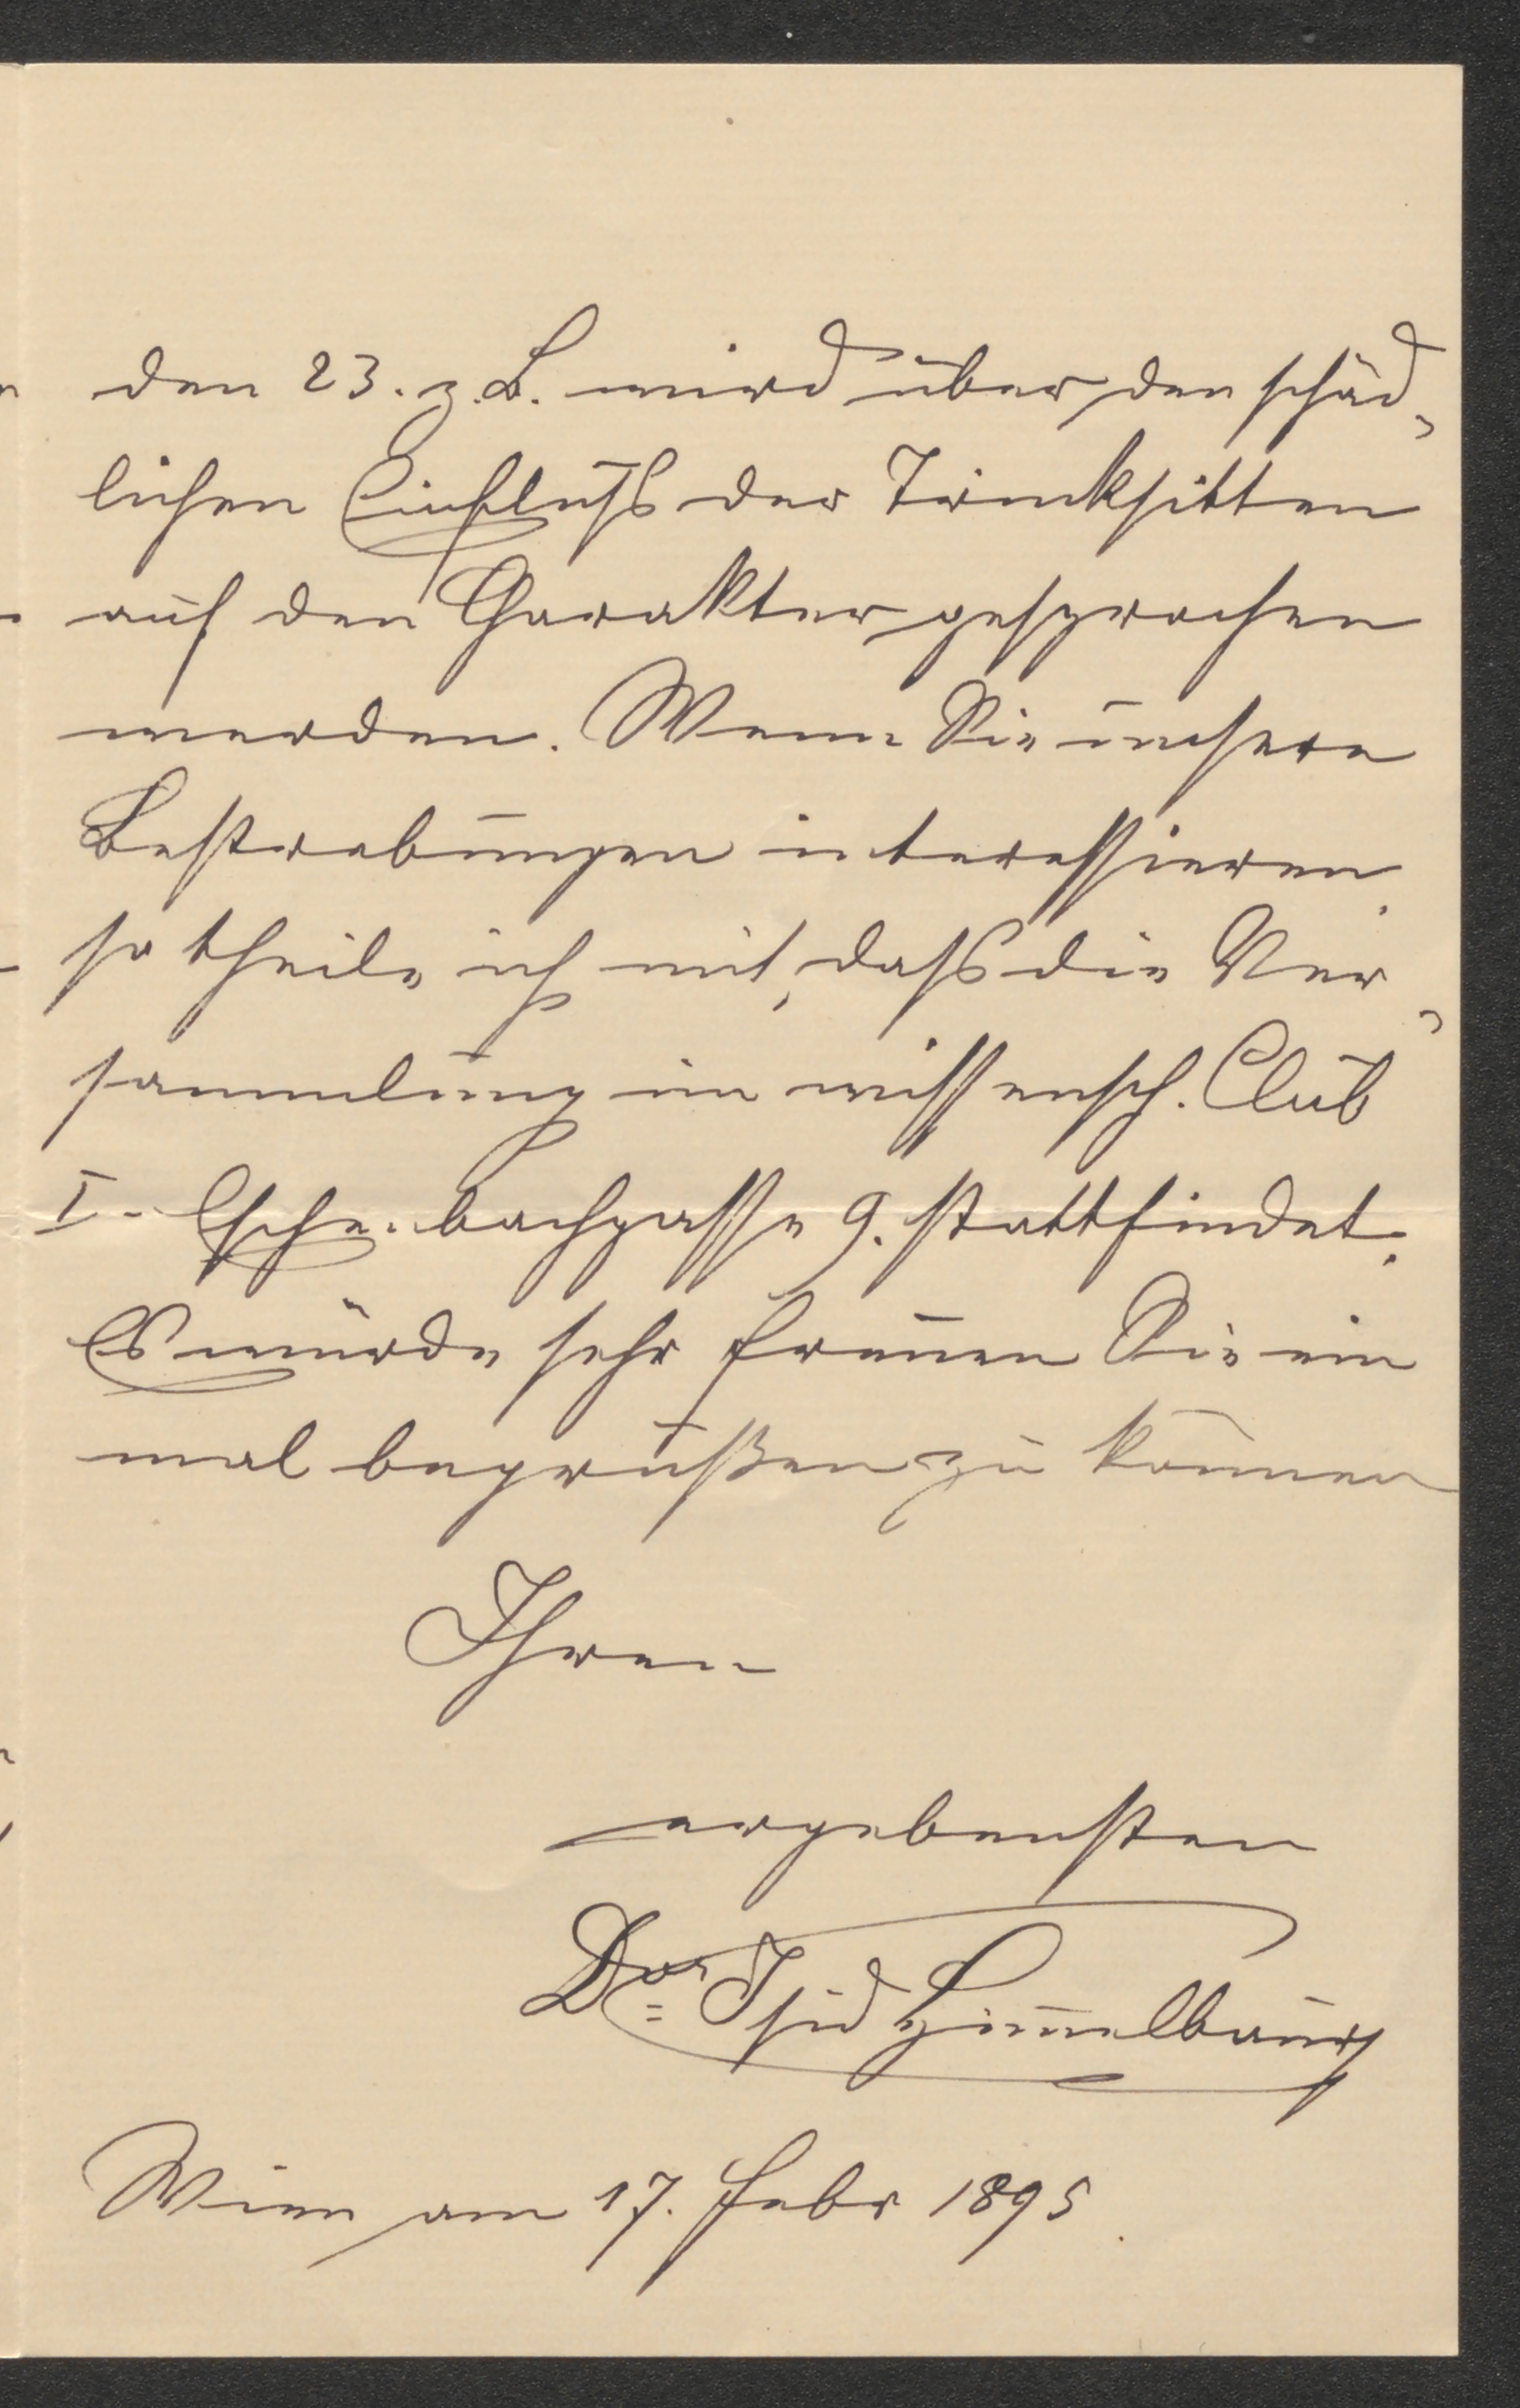 den 23. z. B. wird über den schäd-
lichen Einfluss der Trinksitten
auf den Charakter gesprochen
werden. Wenn Sie unsere
Bestrebungen interessieren,
so theile ich mit, dass die Ver-
sammlung im wissensch. Club
I. Eschenbachgasse 9. stattfindet.
Es würde sehr freuen Sie ein
mal begrüßen zu können
Ihren
ergebensten
Dor Isid Himmelbaur
Wien am 17. Febr 1895.